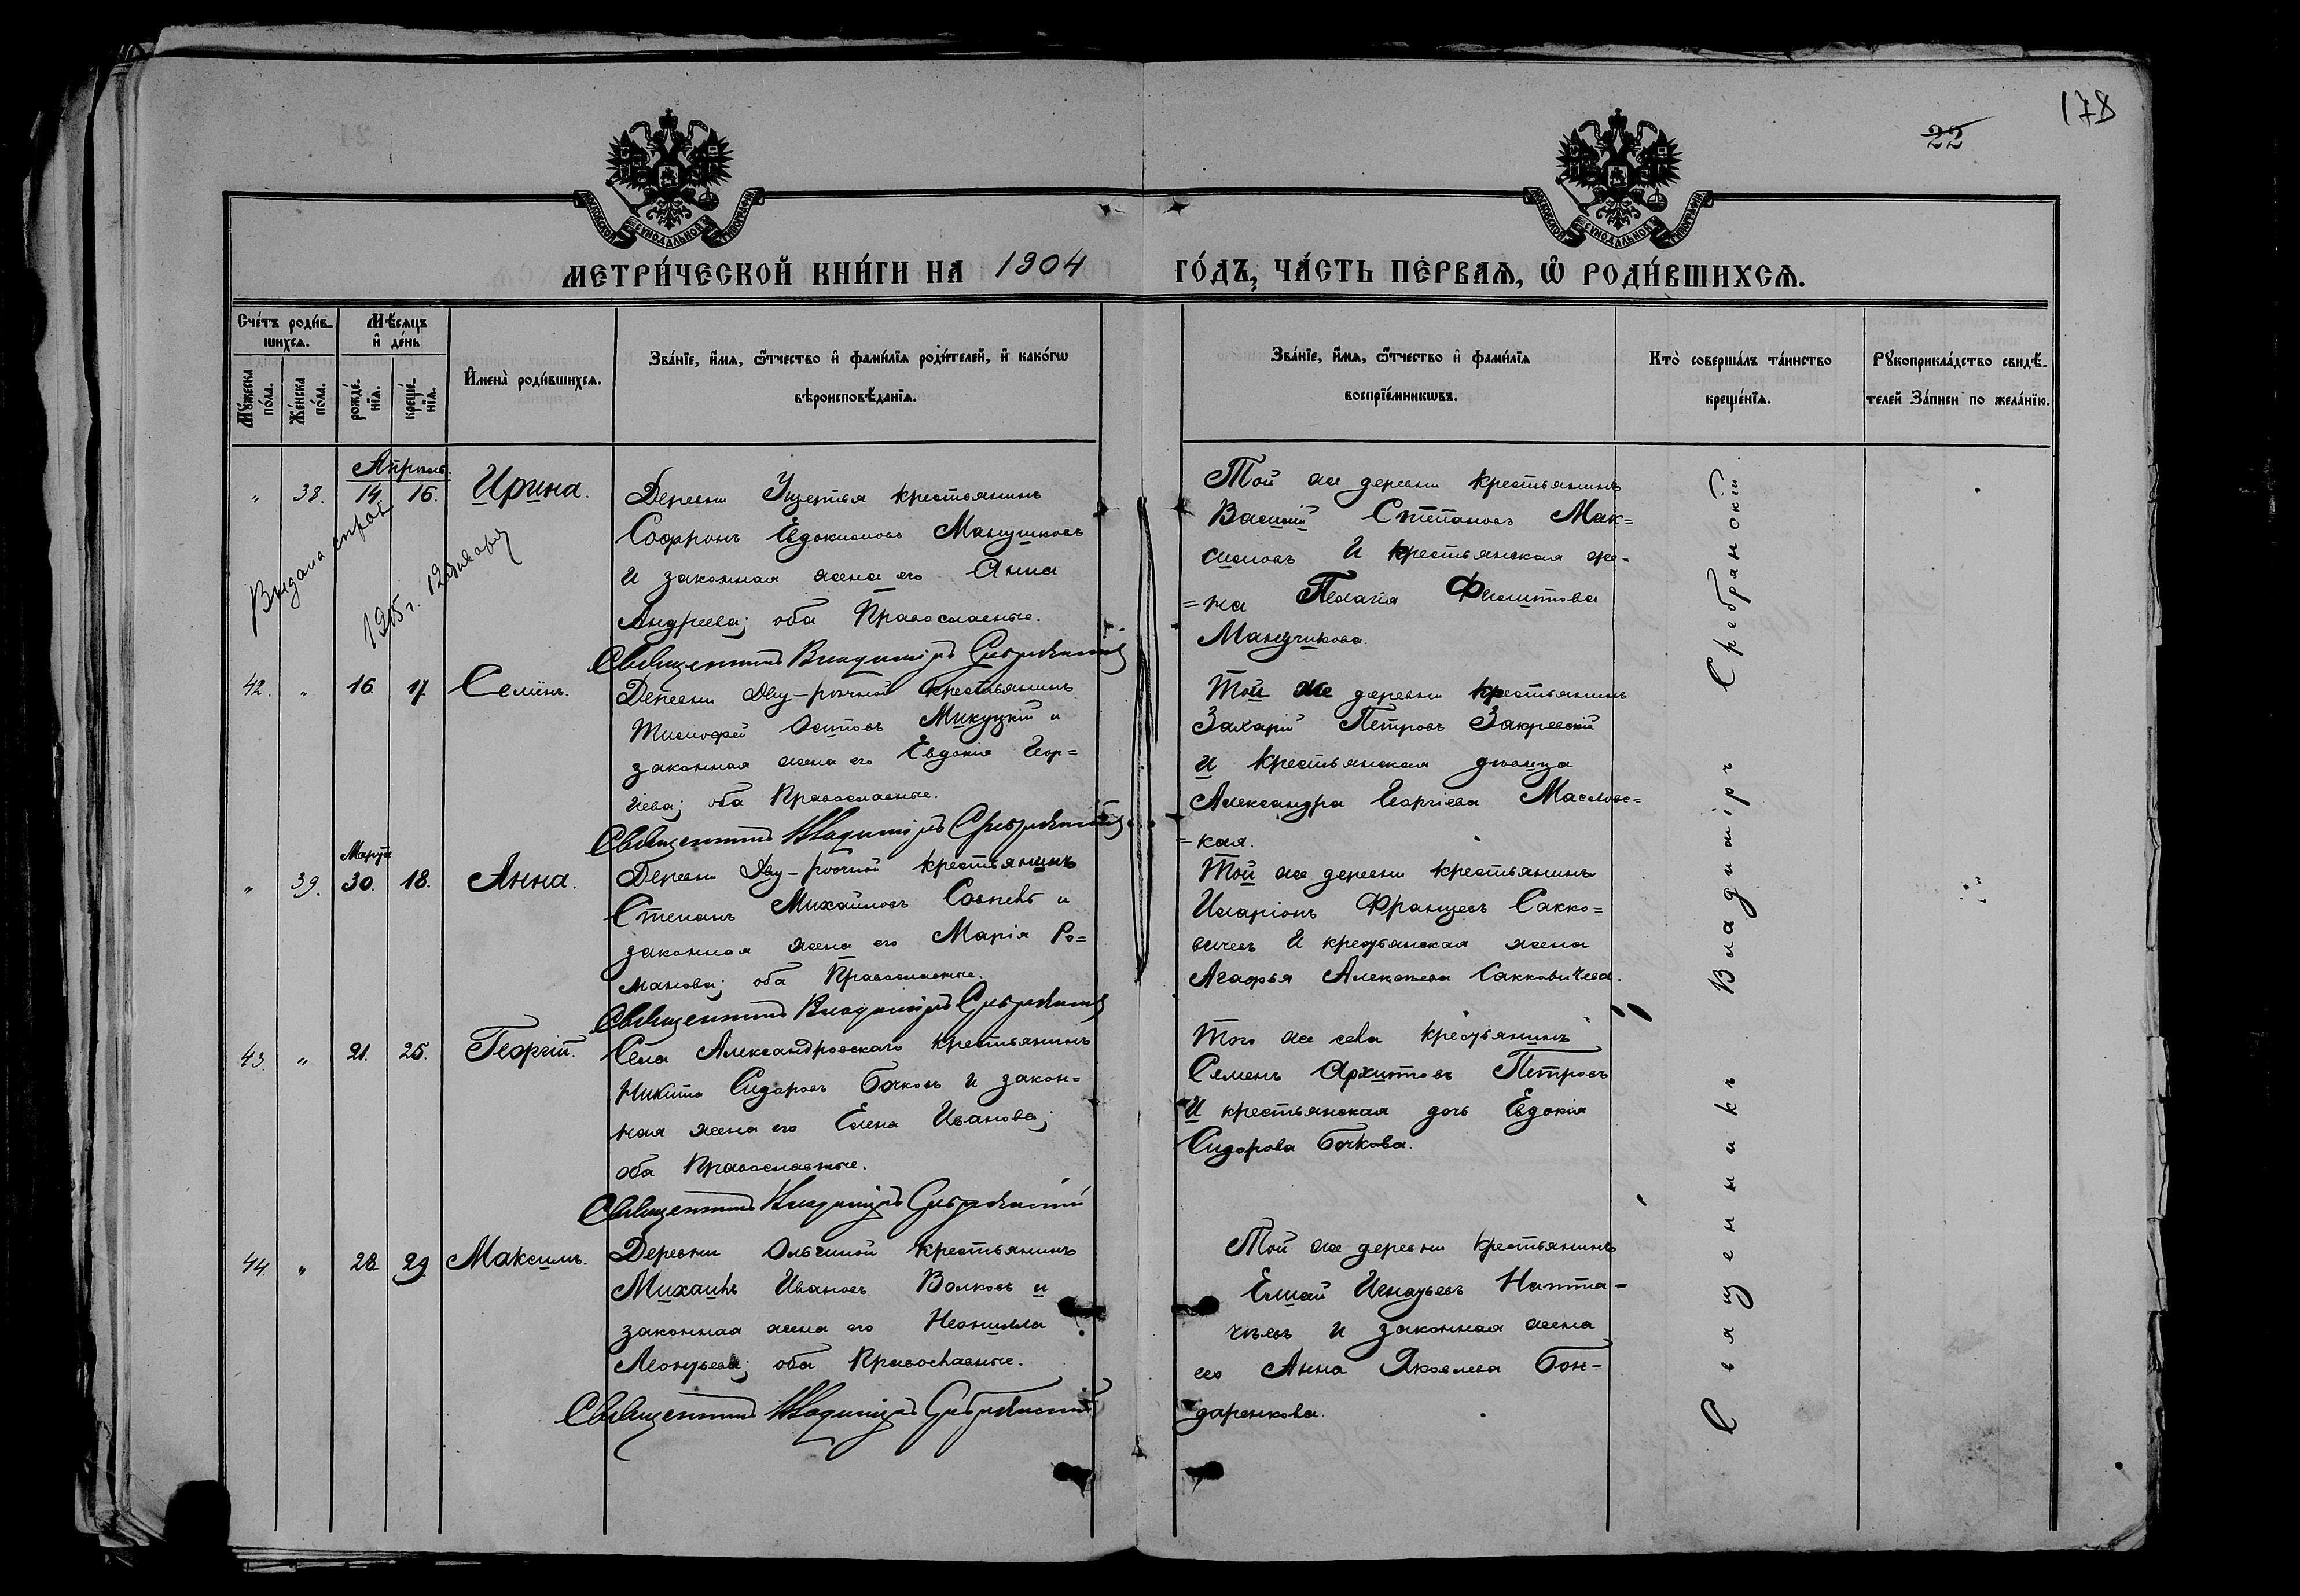 178
22
МОСКОВСКОЙ СѴНОДАЛЬНОЙ ТИПОГРАФІИ
МОСКОВСКОЙ СѴНОДАЛЬНОЙ ТИПОГРАФІИ
МЕТРИ́ЧЕСКОЙ КНИ́ГИ НА 1904 ГО́ДЪ, ЧА́СТЬ ПЕ́РВАѦ, Ѽ РОДИ́ВШИХСѦ.
Сче́тъ роди́в-
шихсѧ.
Мꙋ́жеска по́ла.
Же́нска по́ла.
Мѣ́сѧцъ
и҆ де́нь
рожде́-
нїѧ.
креще́-
нїѧ.
И҆мена̀ роди́вшихсѧ.
Зва́нїе, и҆́мѧ, ѻ҆́тчество и҆ фами́лїѧ роди́телей, и҆ како́гѡ
вѣроисповѣ́данїѧ.
Зва́нїе, и҆́мѧ, ѻ҆́тчество и҆ фами́лїѧ
воспрїе́мникѡвъ.
Кто̀ соверша́лъ та́инство
креще́нїѧ.
Рꙋкоприкла́дство свидѣ́-
телей за́писи по жела́нїю.
Апрѣль.
" 38. 14. 16. Ирина.
Деревни Ущертья крестьянинъ
Софронъ Евдокимовъ Манушковъ
и законная жена его Анна
Андреева; оба Православные.
Священникъ Владиміръ Сребрянскій
Той же деревни крестьянинъ
Василій Степановъ Мак=
симовъ и крестьянская же-
=на Пелагія Филиппова
Манучикова.
Выдана справ
1915 г. 12 января
42. " 16. 17. Семенъ.
Деревни Дву-рочной крестьянинъ
Тимофей Осиповъ Микуцкій и
законная жена его Евдокія Геор=
гіева; оба Православные.
Священникъ Владиміръ Сребрянскій
Той же деревни крестьянинъ
Захарій Петровъ Закревскій
и крестьянская дѣвица
Александра Георгіева Масловс=
=кая.
Марта
" 39. 30. 18. Анна.
Деревни Дву-рочной крестьянинъ
Степанъ Михайловъ и
законная жена его Марія Ро=
манова; оба Православные.
Священникъ Владиміръ Сребрянскій
Той же деревни крестьянинъ
Иларіонъ Францевъ Сакко=
вичевъ и крестьянская жена
Агафья Алексѣева Саккавичева.
43. " 21. 25. Георгій.
Села Александровскаго крестьянинъ
Никита Сидоровъ Бочковъ и закон=
ная жена его Елена Иванова;
оба Православные.
Священникъ Владиміръ Сребрянскій
Того же села крестьянинъ
Семенъ Архиповъ Петровъ
и крестьянская дочь Евдокія
Сидорова Бочкова.
44. " 28. 29. Максимъ.
Деревни Ольгиной крестьянинъ
Михаилъ Ивановъ Волковъ и
законная жена его Неонилла
Леонтьева; оба Православные.
Священникъ Владиміръ Сребрянскій
Той же деревни крестьянинъ
Елисей Игнатьевъ
и законная жена
его Анна Яковлева Бон-
даренкова.
Священникъ Владиміръ Сребрянскій.